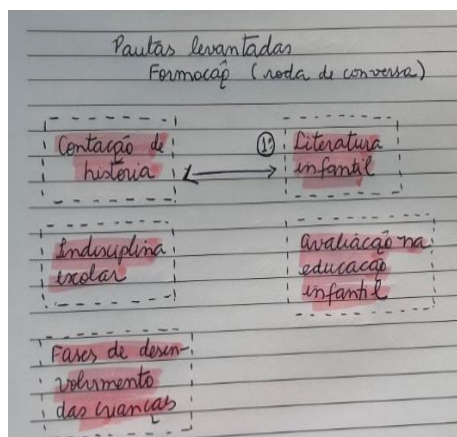 Pautas levantadas
Formocação (roda de conversa)
Contação de
história
1º Literatura
infantil
Indisciplina
escolar
avaliacção na
educacao
infantil
Fases de desen-
volvimento
das crianças